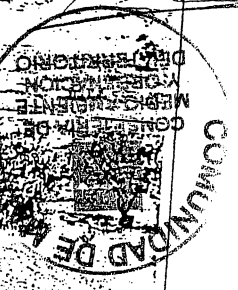 COMUNIDAD DE
CONSEJERIA DE
MEDIO AMBIENTE
Y ORDENACION
DEL TERRITORIO